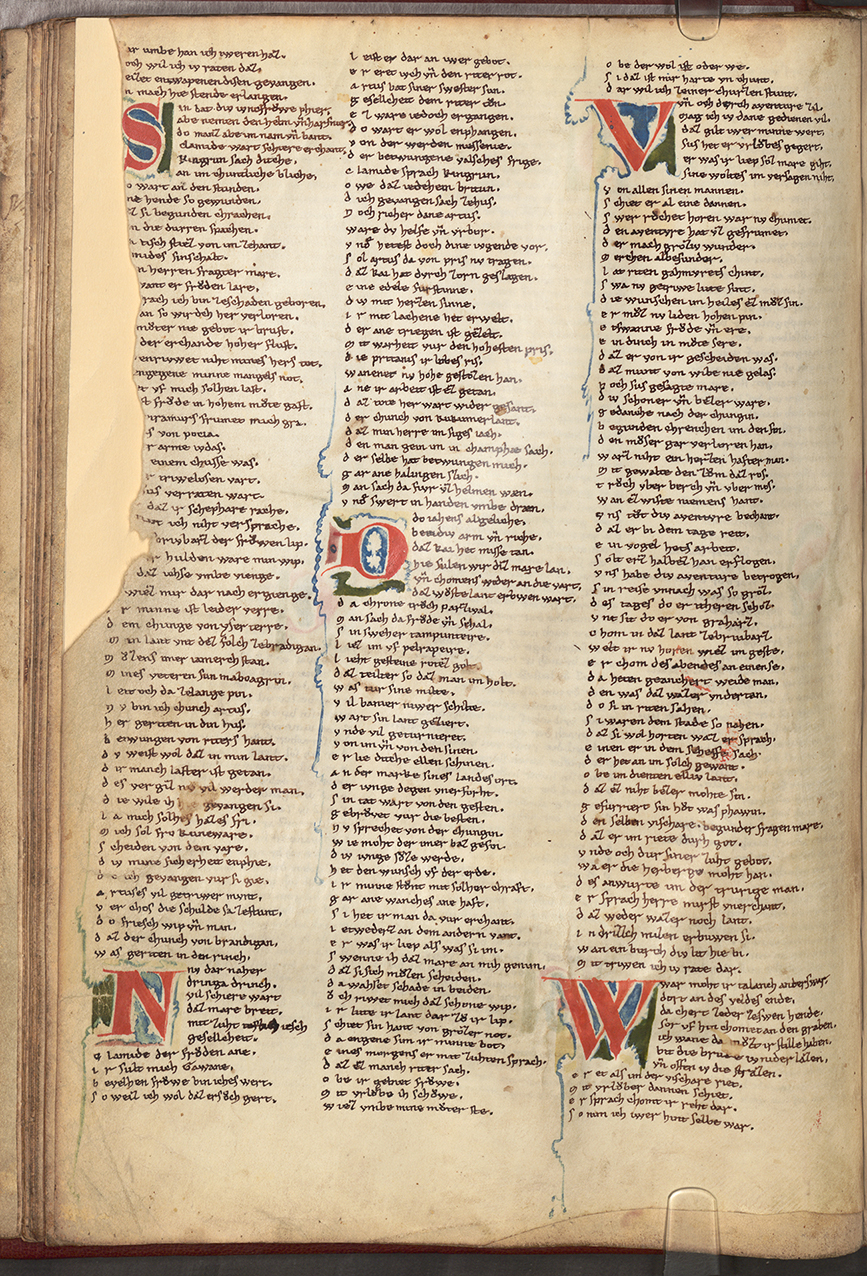 ar umbe han ich iweren haz.
och wil ich iv raten daz.
eilet entwapenen disen gevangen.
n mach hie stende erlangen.
S in bat div ivncfröwe phier.
abe nemen den helm vñ harsnier.
do manz abe im nam vñ bant.
clamide wart schiere erchant.
kingrun sach diche.
an im chuntliche bliche.
o wart an den stunden.
ne hende so gewunden.
z si begunden chrachen.
m die durren spachen.
n tisch stiez von im zehant.
mides sinschalt.
n herren fragter mare.
vant er fröden lare.
rach ich bin ze schaden geboren.
an so wirdeh her verloren.
möter nie gebot ir brust.
der erchande hoher flust.
enrivwet niht mines hers tot.
ngegene minne mangels not.
t vf mich solhen last.
t fröde in hohem möte gast.
niramurs frumet mich gra.
s von pocia.
r arme vdas.
einem chusse was.
r trivwelosen vart.
us verraten wart.
daz ir scherphare rache.
ht ich niht versprache.
orivbarz der fröwen lip.
r hulden ware min wip.
daz ichse vmbe vienge.
wiez mir dar nach ergienge.
r minne ist leider verre.
d em chunge von yserterre.
m in lant vnt dez folch ze bradigan.
m özens imer iamerch stan.
m ines veteren sun mabonagrin.
l eit och da ze lange pin.
n v bin ich chunch artus.
h er geriten in din hus.
b etwungen von riters hant.
d v weist wol daz in min lant.
d ir manch laster ist getan.
d es vergiz nv vil werder man.
d ie wile ich hie gevangen si.
l a mich solhes hazes fri.
m ich sol fro kuneware.
s cheiden von dem vare.
d iv mine sicherheit enphie.
d o ich gevangen fur si gie.
a rtuses vil getriwer munt.
v er chos die schulde sa ze stunt.
d o friesch wip vñ man.
d az der chunch von brandigan.
w as geriten in den rinch.
N nv dar naher
dringa drinch.
vil schiere wart
daz mare breit.
mit zuht iesch
gesellcheit.
c lamide der fröden ane.
i r sult mich Gawane.
b evelhen fröwe bin ichs wert.
s o weiz ich wol daz ersöch gert.
l eister dar an iwer gebot.
e r eret ivch vñ den riter rot.
a rtus bat siner swester sun.
g eselleheit dem riter tön.
e z ware iedoch ergangen.
d o wart er wol enphangen.
v on der werden massenie.
d er betwungene valsches frige.
c lamide sprach kingrun.
o we daz iedehein britun.
d ich gevangen sach zehus.
n och richer dane artus.
ware dv helfe vñ vrbor.
v nd hetest doch dine ivgende vor.
s ol artus da von pris nv tragen.
d az kai hat dvrch zorn geslagen.
e ine edele furstinne.
d iv mit herzen sinne.
i r mit lachene het erwelt.
d er ane triegen ist gezelt.
m it warheit vur den hohesten pris.
d ie pritanis ir lobes ris.
wanenet nv hohe gestozen han.
a ne ir arbeit ist ez getan.
d az tote her wart wider gesant.
d er chunch von kukumerlant.
d az min herre im siges iach.
d en man gein im in champhe sach.
d er selbe hat betwungen mich.
g ar ane halingen slich.
m an sach da fiwr vz helmen wæn.
v nd swert in handen vmbe dræn.
D do iahens alzeliche.
beidiv arm vñ riche.
daz kai het misse tan.
hie sulen wir diz mare lan.
vñ chomens weder an die vart.
daz wöste lant erbwen wart.
d a chrone trech parzival.
m an sach da fröde vñ schal.
s in sweher tampunteire.
l iez im vf pelrapeire.
l ieht gesteine rotez golt.
d az teilter so daz man im holt.
w as vur sine milte.
v il banier niwer schilte.
w art sin lant geziert.
v nde vil geturnieret.
v on im vñ von den sinen.
e r lie diche ellen schinen.
a n der marke sines landes ort.
d er ivnge degen vnerforht.
s in tat wart von den gesten.
g ebrövet vur die besten.
n v sprechet von der chungin.
w ie moht der imer baz gesin.
d iv ivnge söze werde.
h et den wunsch vf der erde.
i r minne stönt mit solher chraft.
g ar ane wanches ane haft.
s i het ir man da vur erchant.
i etweders an dem andern vant.
e r was ir liep als was si im.
s wenne ih daz mare an mih genim.
d az si sich müzen scheiden.
d a wahset schade in beiden.
ö ch riwet mich daz schone wip.
i r lute ir lant dar zö ir lip.
s chiet sin hant von grözer not.
d a engene sun ir minne bot.
e ines morgens er mit zuhten sprach.
d az ez manch riter sach.
o be ir gebiet fröwe.
m it vrlobe ih schöwe.
w iez vmbe mine möter ste.
o be der wol ist oder we.
s i daz ist mir harte vn chunt.
d ar wil ich zeiner churzen stunt.
V vñ och derch aventure zil.
mag ich iv dane gedienen vil.
daz gilt ivwer minne wert.
sus het er vrlöbes gegert.
er was ir liep sol mare giht.
sine woltes im versagen niht.
v on allen sinen mannen.
s chiet er al eine dannen.
s wer röchet horen war nv chumet.
d en aventure hat vz gefrumet.
d er mach groziv wunder.
m erchen albesunder.
l at riten gahmvrets chint.
s wa nv getriwe liute sint.
d ie wunschen im heiles ez möz sin.
e r möz nv liden hohen pin.
e tswanne fröde vñ ere.
e in dinch in möte sere.
d az er von ir gescheiden was.
d az munt von wibe nie gelas.
n och sus gesagte mare.
d iv schoner vñ bezer ware.
g edanche nach der chungin.
b egunden chrenchen im den sin.
d en möser gar verloren han.
w arz niht ein herzen hafter man.
m it gewalte den zöm daz ros.
t röch vber berch vñ vber mos.
w an ez wiste niemens hant.
v ns töt div aventure bechant.
d az er bi dem tage reit.
e in vogel hets arbeit.
s olt erz halbez han erflogen.
v ns habe div aventure betrogen.
s in reise vnnach was so groz.
d es tages do er itheren schoz.
v nt sit do er von graharz.
c hom in daz lant zebrubarz.
welt ir nv horen wiez im geste.
e r chom des abendes an einen se.
d a heten geanchert weide man.
d en was daz wazer vndertan.
d o si in riten sahen.
s i waren dem stade so nahen.
d az si wol horten waz er sprach.
e inen er in dem scheffe sach.
d er het an im solch gewant.
o be im dienten elliv lant.
d az ez niht bezer mohte sin.
g efurriert sin höt was phawin.
d en selben vischare begunder fragen mare.
d az er im riete durh got.
v nde och dur siner zuht gebot.
wa er die herberge moht han.
d es anwurte im der trurige man.
e r sprach herre mirst vnerchant.
d az weder wazer noch lant.
i n drizzich milen erbuwen si.
w an ein burch div lit hie bi.
m it triwen ich iv rate dar.
W war moht ir talanch anderswar.
dort an des veldes ende.
da chert zeder zeswen hende.
sor vf hin chomet an den graben.
ich wane da möht ir stille haben.
bit die brucke iv nider lazen.
vñ offen iv die strazen.
e r tet als im der vischare riet.
m it vrlöber dannen schiet.
e r sprach chomt ir reht dar.
s o nim ich iwer hint selbe war.